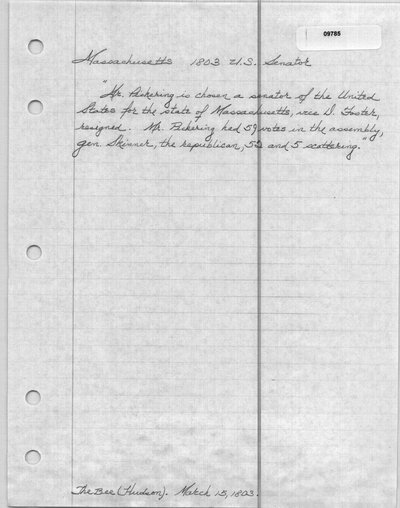 09785
Massachusetts 1803 U.S. Senator
"Mr. Pickering is chosen a senator of the United
States for the state of Massachusetts, vice D. Foster,
resigned. Mr. Pickering had 59 votes in the assembly,
gen. Skinner, the republican, 52 and 5 scattering."
The Bee (Hudson). March 15, 1803.